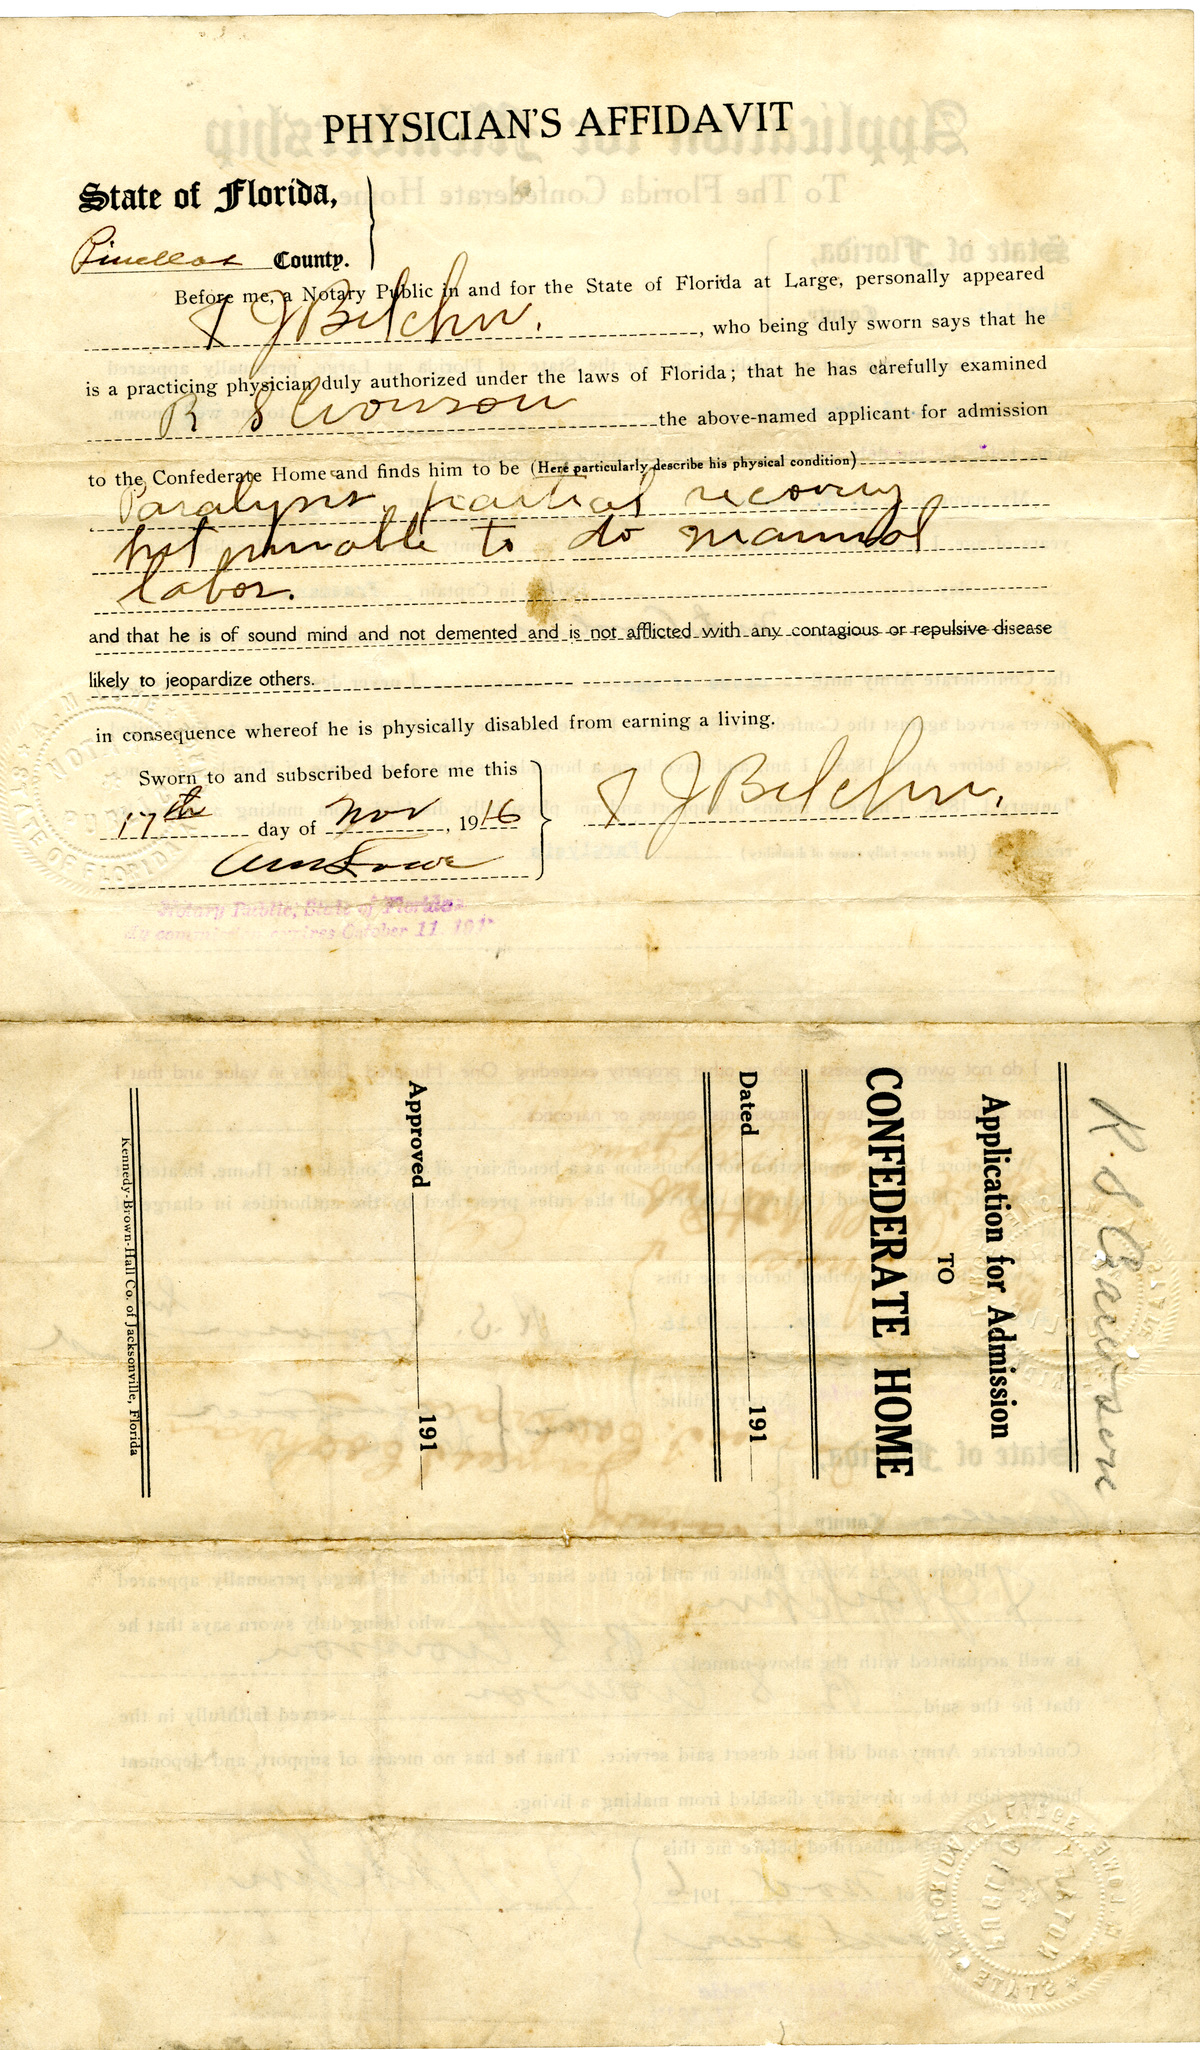 PHYSICIAN'S AFFIDAVIT
State of Florida,
Pinellas County.
Before me, a Notary Public in and for the State of Florida at Large, personally appeared
J Belcher. , who being duly sworn says that he
is a practicing physician duly authorized under the laws of Florida; that he has carefully examined
R S the above-named applicant for admission
to the Confederate Home and finds him to be (Here particularly describe his physical condition)
Paralysis, partial recovery
but unable to do manual
labor.
and that he is of sound mind and not demented and is not afflicted with any contagious or repulsive disease
likely to jeopardize others.
in consequence whereof he is physically disabled from earning a living.
Sworn to and subscribed before me this
17th day of Nov , 1916
J Belcher.
Notary Public, State of Florida
My commission expires October 11, 191
R. S.
Application for Admission
TO
CONFEDERATE HOME
Dated 191
Approved 191
Kennedy-Brown-Hall Co. of Jacksonville, Florida
NOTARY
PUBLIC
STATE OF FLORIDA